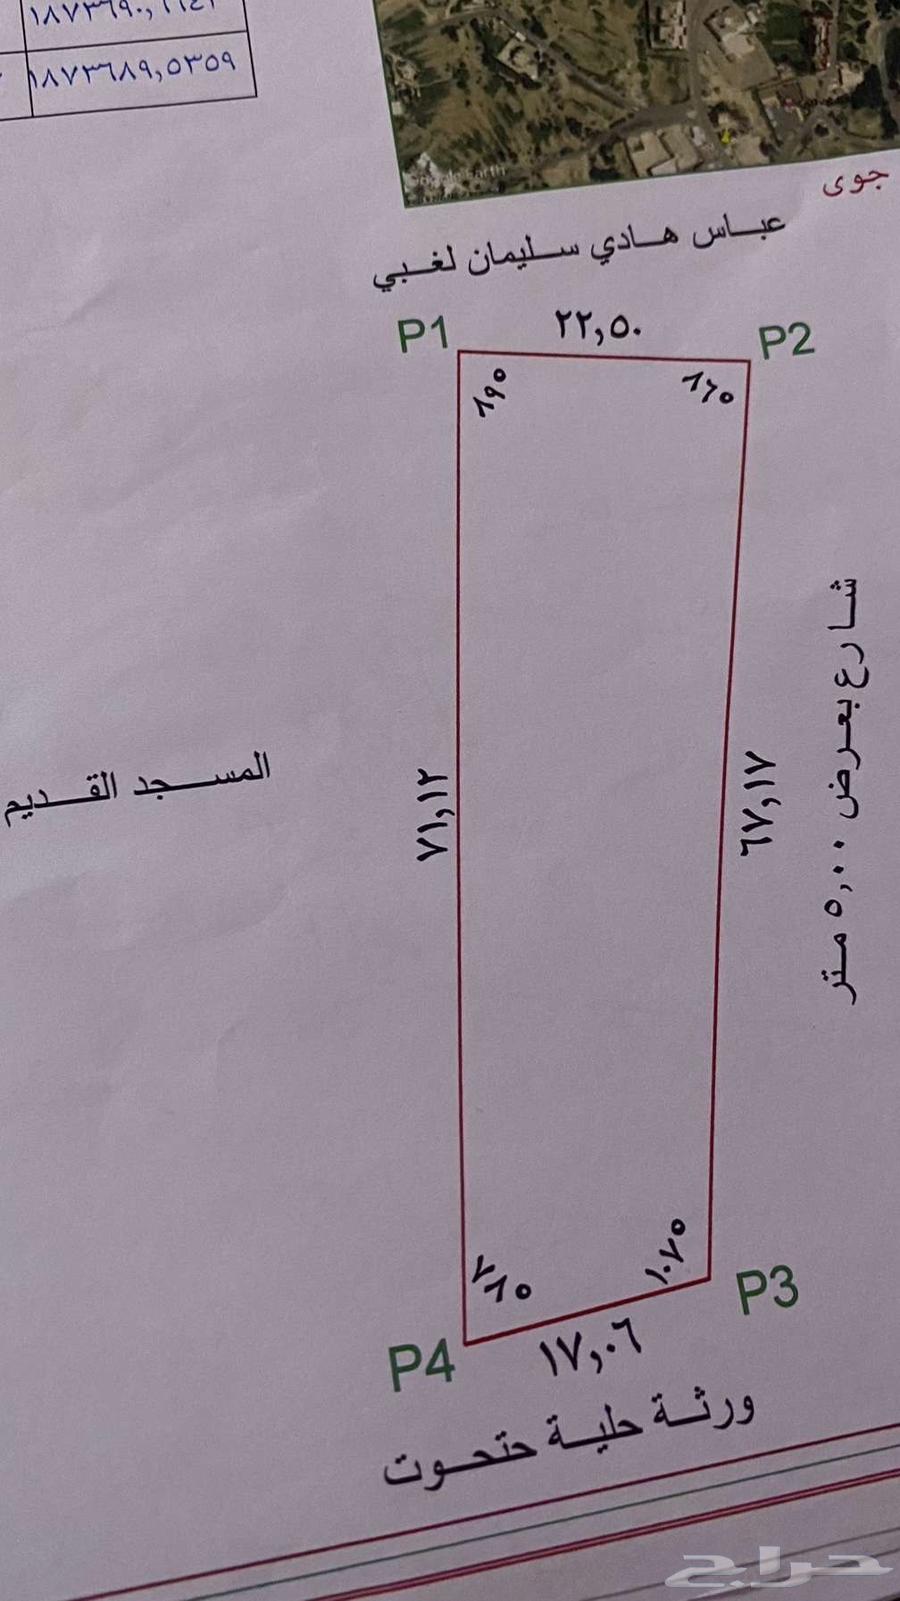 ١٨٧٣٦٨٩,٥٣٥٩
Google Earth
جوى
عباس هادي سليمان لغبي
P1
٢٢,٥٠
P2
٨٩٥
٨٦٥
شارع بعرض ٥,٠٠ متر
٦٧,١٧
٧١,١٢
المسجد القديم
٧٦٥
١٠٧٥
P3
P4
١٧,٠٦
ورثة حلية حتحوت
حراج